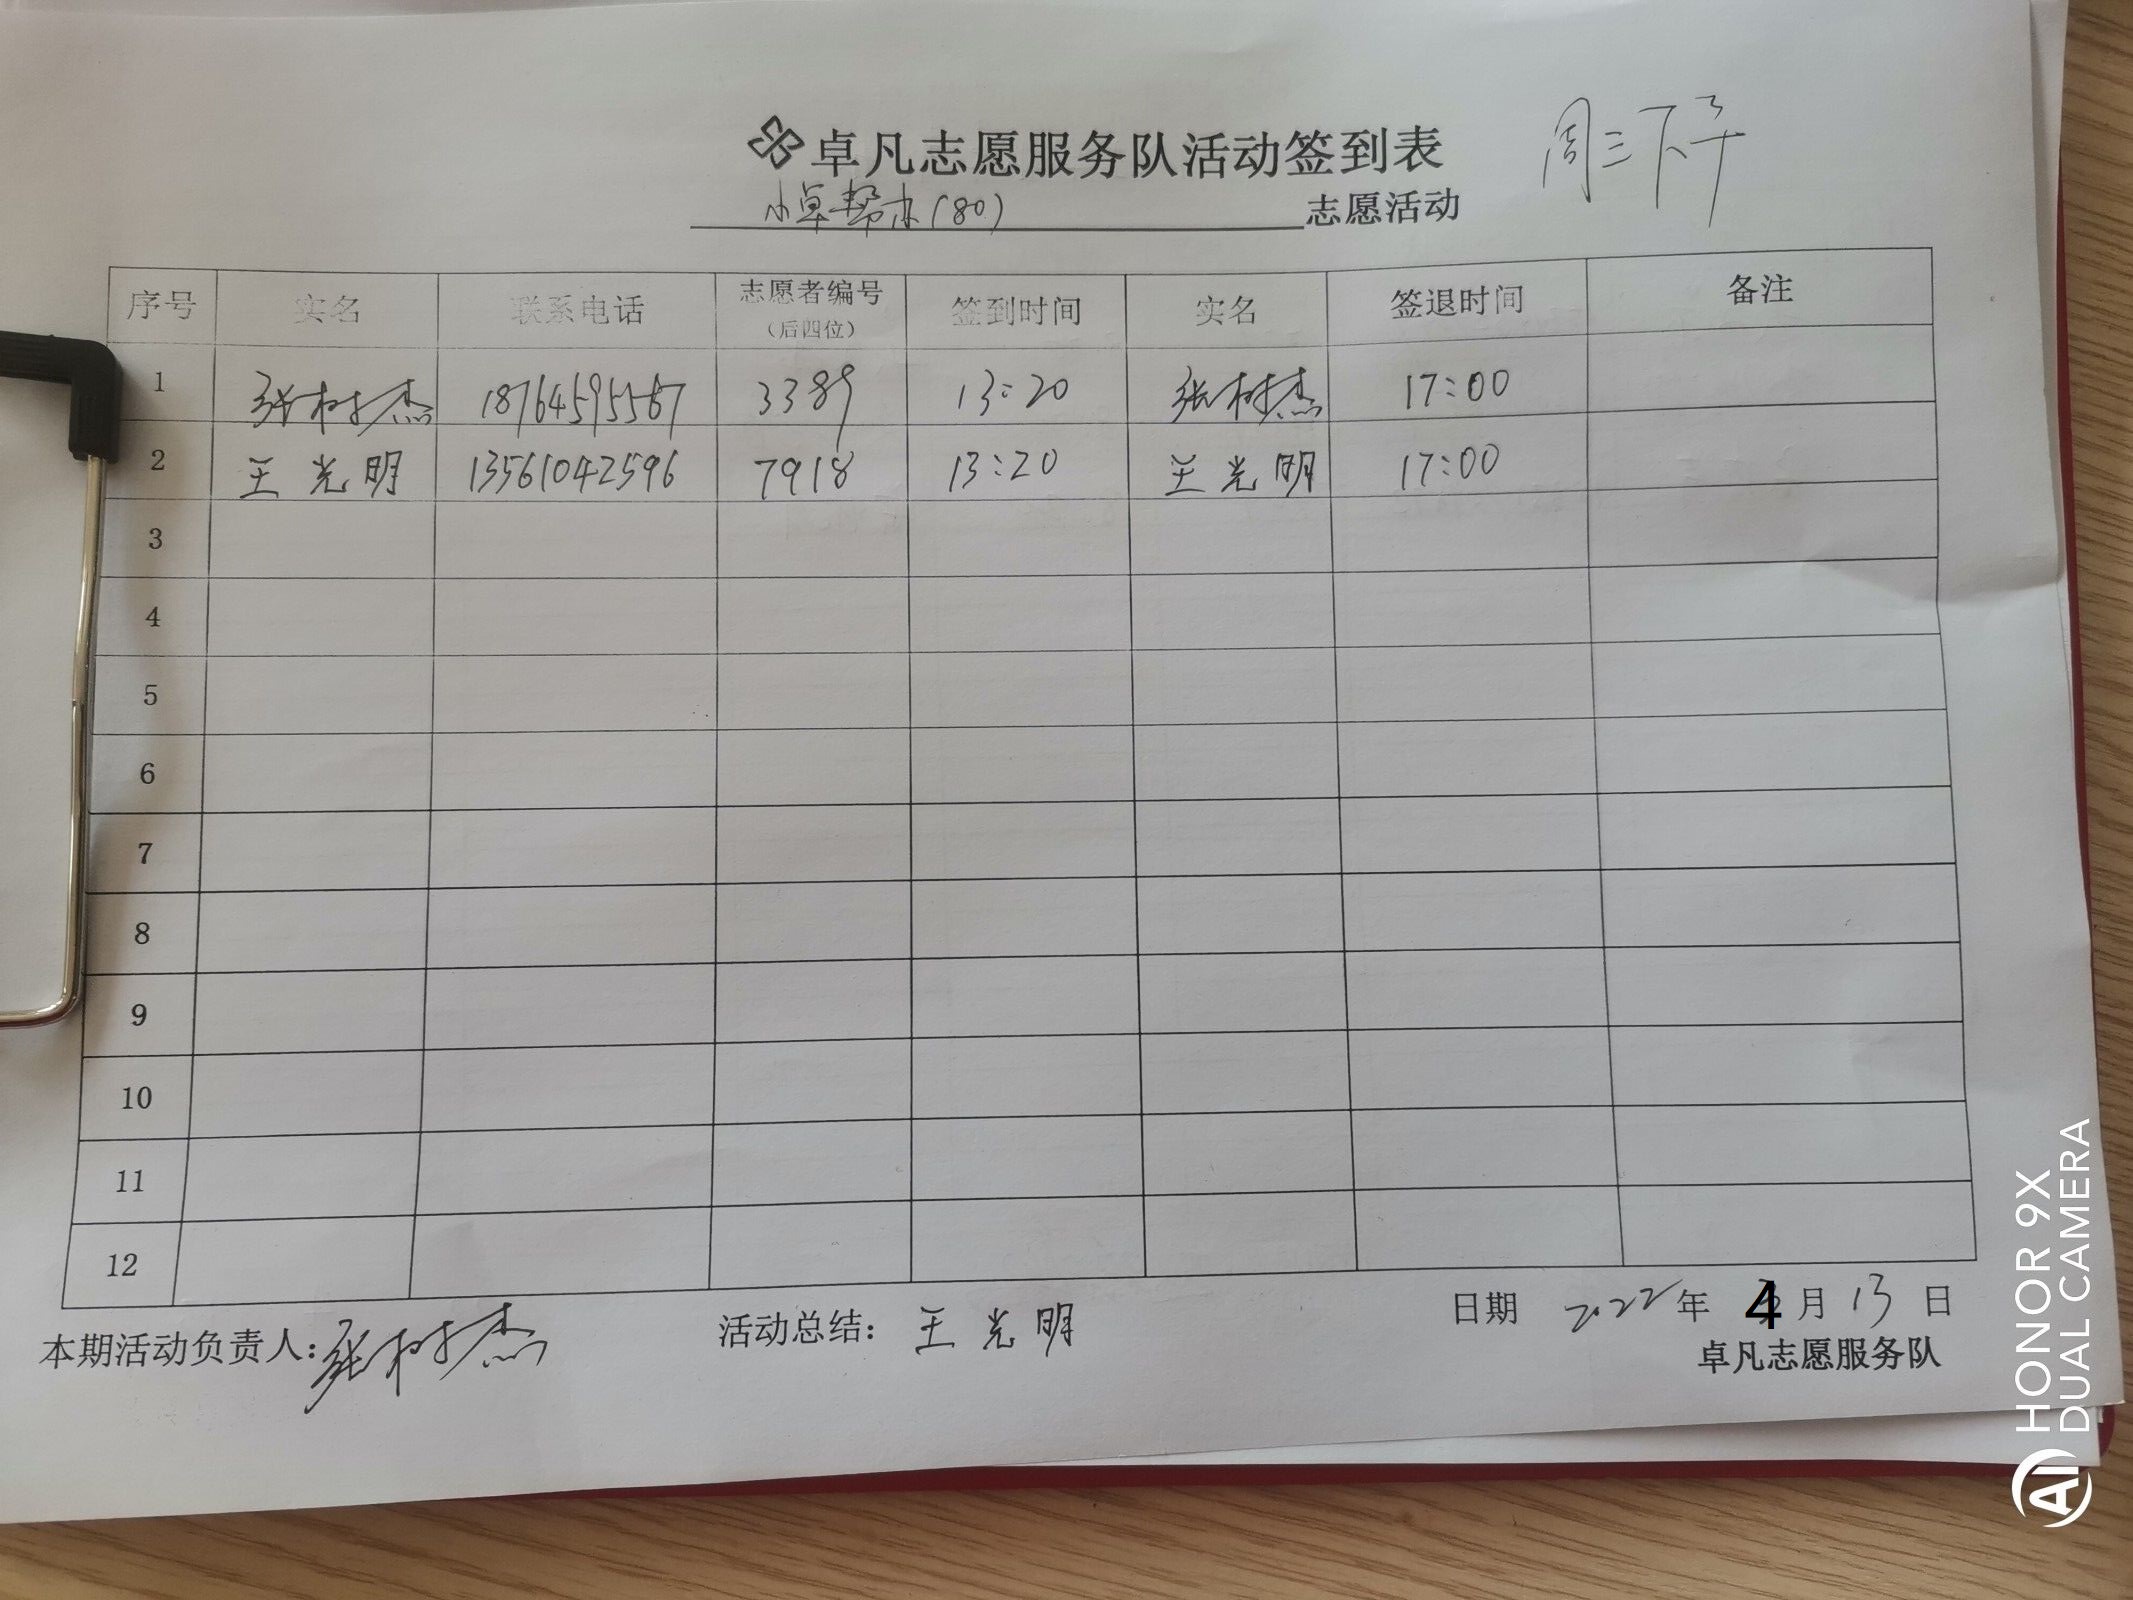 卓凡志愿服务队活动签到表
周三下午
小卓帮办(80) 志愿活动
序号 实名 联系电话 志愿者编号(后四位) 签到时间 实名 签退时间 备注
1 张树杰 18764595567 3389 13:20 张树杰 17:00
2 王光明 13561042596 7918 13:20 王光明 17:00
3
4
5
6
7
8
9
10
11
12
本期活动负责人:张树杰 活动总结:王光明 日期 2022年4月13日
卓凡志愿服务队
HONOR 9X
DUAL CAMERA
AI